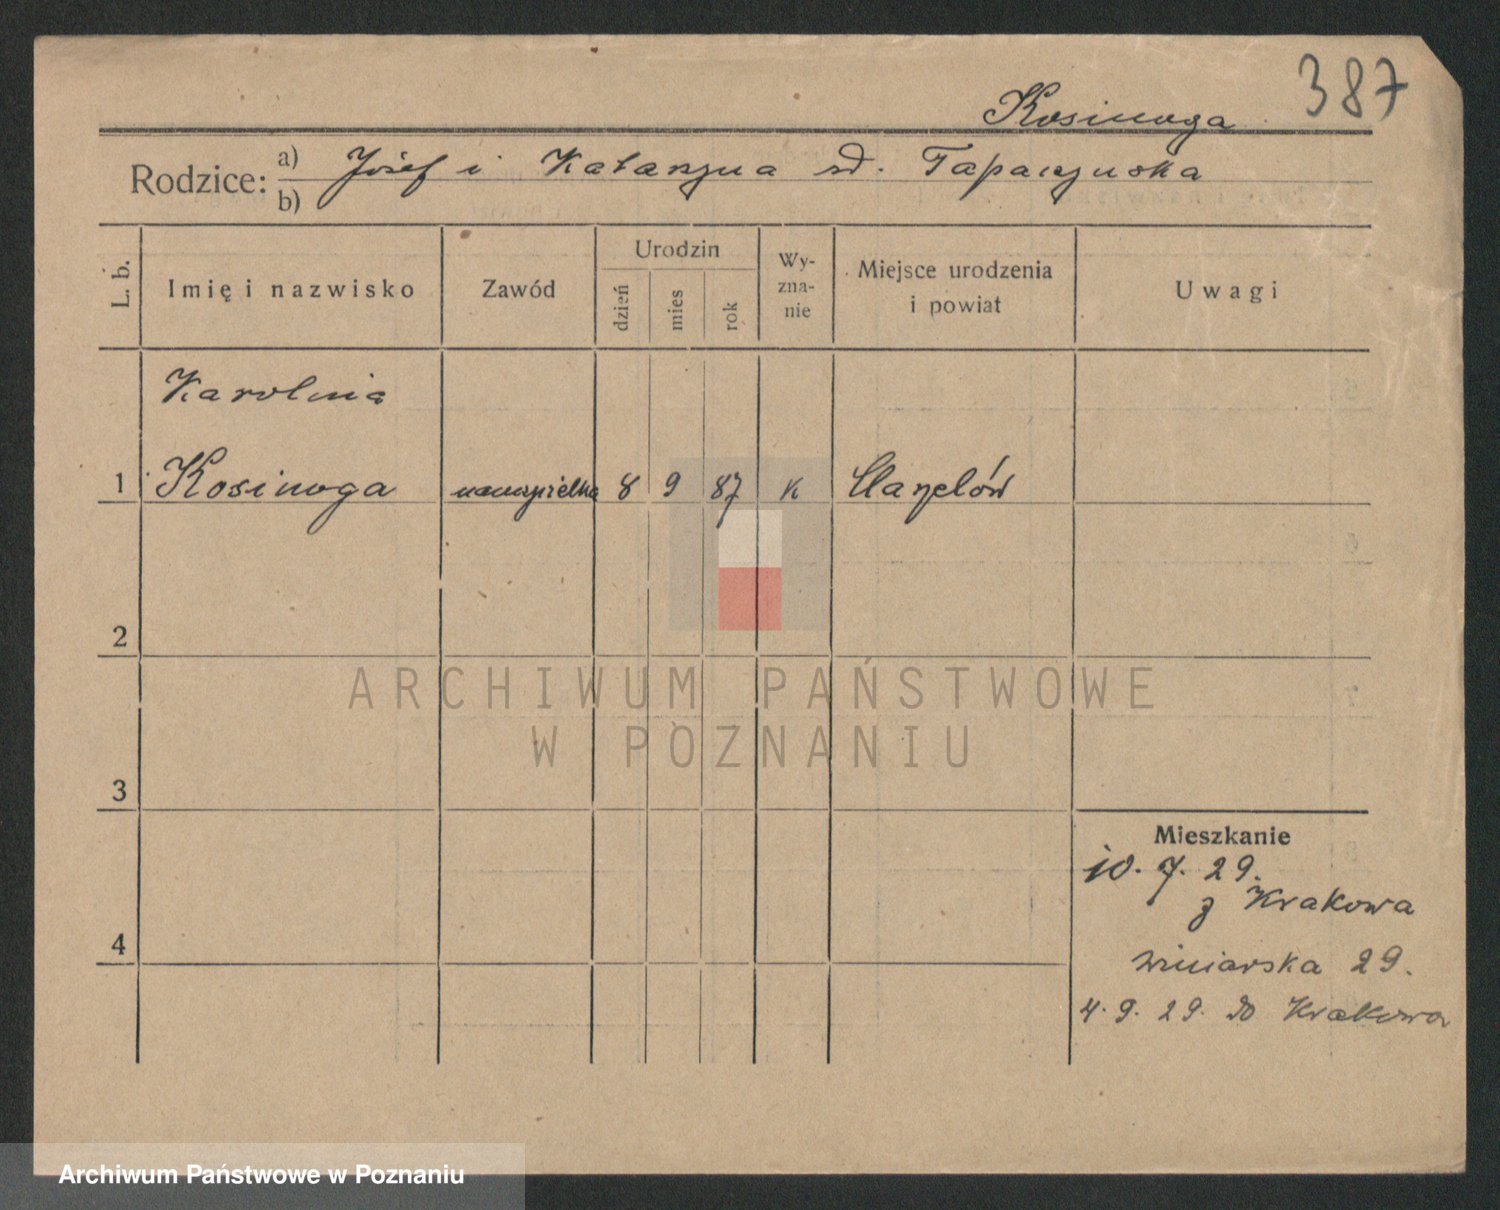 387
Kosinoga
Rodzice: a) Józef i Katarzyna zd. Tapaczyńska
b)
L. b. Imię i nazwisko Zawód Urodzin dzień mies rok Wy-zna-nie Miejsce urodzenia i powiat Uwagi
Karolina
1 Kosinoga 8 9 87 k
2
ARCHIWUM PAŃSTWOWE
W POZNANIU
3
Mieszkanie
10. 7. 29.
z Krakowa
4
Winiarska 29.
4. 9. 29. do Krakowa
Archiwum Państwowe w Poznaniu